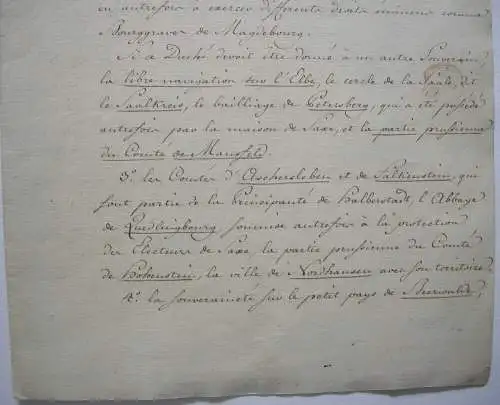 en autrefois a exercé différents droits éminens comme
Bourggraves de Magdebourg.
Si ce Duché devoit être donné à un autre Souverain,
la libre navigation sur l'Elbe, le cercle de la Saale, dit
le Saalkreis, le bailliage de Petersberg, qui a été possédé
autrefois par la maison de Saxe, et la partie prussienne
du Comté de Mansfeld.
3.° les Comtés d'Aschersleben et de Falkenstein, qui
font partie de la Principauté de Halberstadt, l'Abbaye
de Quedlingbourg soumise autrefois à la protection
des Electeurs de Saxe, la partie prussienne du Comté
de Hohenstein, la ville de Nordhausen avec son territoire
4.° la souveraineté sur le petit pays de Beerwalde,